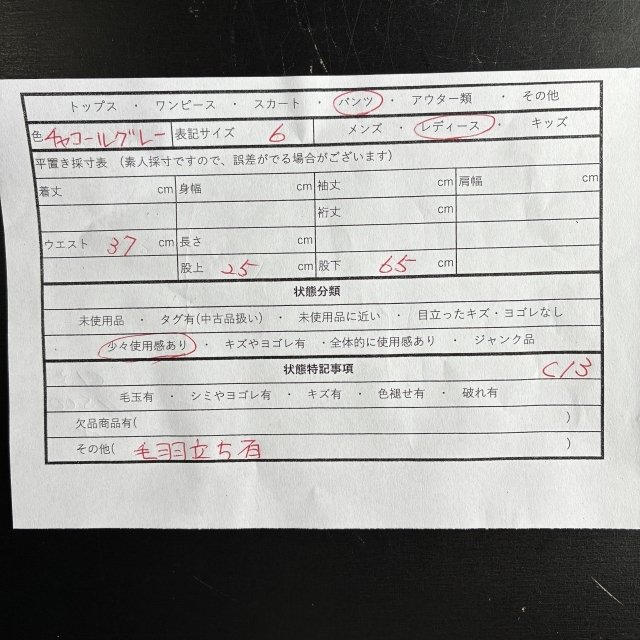 トップス ・ ワンピース ・ スカート ・ パンツ ・ アウター類 ・ その他
色 チャコールグレー 表記サイズ 6 メンズ ・ レディース ・ キッズ
平置き採寸表 (素人採寸ですので、誤差がでる場合がございます)
着丈 cm 身幅 cm 袖丈 cm 肩幅 cm
裄丈 cm
ウエスト 37 cm 長さ cm
股上 25 cm 股下 65 cm
状態分類
未使用品 ・ タグ有(中古品扱い) ・ 未使用品に近い ・ 目立ったキズ・ヨゴレなし
少々使用感あり ・ キズやヨゴレ有 ・全体的に使用感あり ・ ジャンク品
状態特記事項 C13
毛玉有 ・ シミやヨゴレ有 ・ キズ有 ・ 色褪せ有 ・ 破れ有
欠品商品有( )
その他( 毛羽立ち有 )